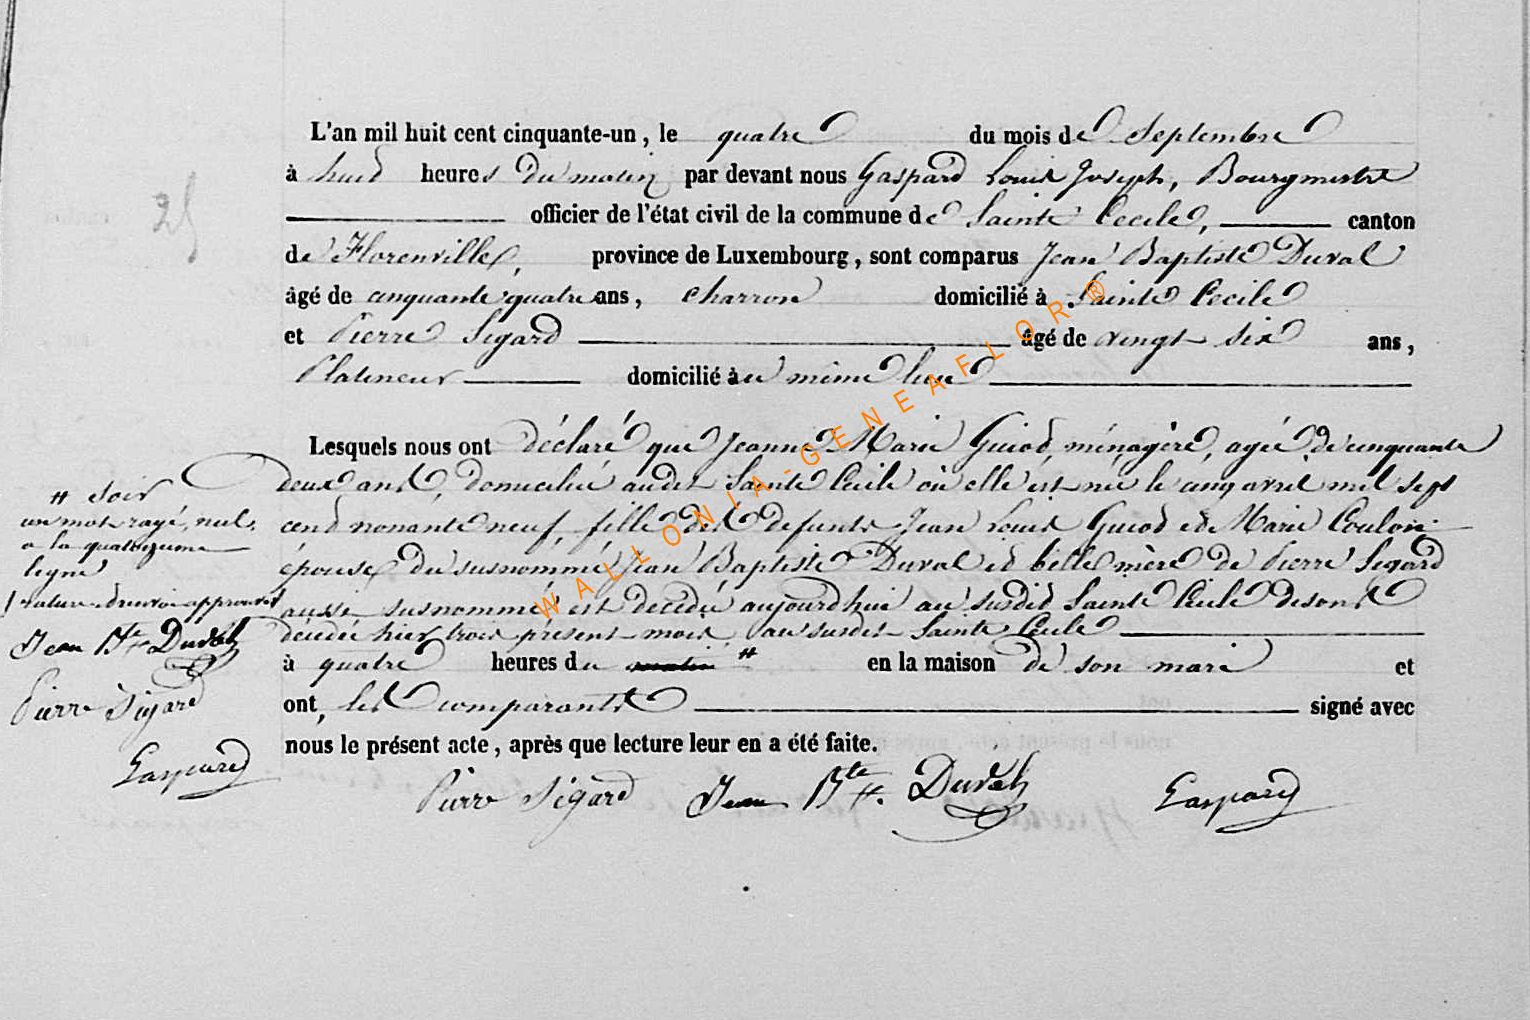 25
L'an mil huit cent cinquante-un, le quatre du mois de Septembre
à huit heures du matin par devant nous Gaspard Louis Joseph, Bourgmestre
officier de l'état civil de la commune de Sainte Cecile, canton
de Florenville, province de Luxembourg, sont comparus Jean Baptiste Duval
âgé de cinquante quatre ans, charron domicilié à Sainte Cecile
et Pierre Sigard âgé de vingt six ans,
Platineur domicilié au même lieu
Lesquels nous ont déclaré que Jeanne Marie Guiod, ménagère, agée de cinquante
deux ans, domiciliée audit Sainte Cécile où elle est née le cinq avril mil sept
cent nonante neuf, fille des defunts Jean Louis Guiod et de Marie Coulon
épouse du susnommé Jean Baptiste Duval et belle mère de Pierre Sigard
aussi susnommé est décédée aujourd'hui au susdit Sainte Cécile
décédée hier trois présent mois au susdit Sainte Cécile
à quatre heures du matin # en la maison de son mari et
ont, les comparants signé avec
nous le présent acte, après que lecture leur en a été faite.
Pierre Sigard Jean Bte Duval Gaspard
# soir
un mot rayé, nul,
a la quatorzieme
ligne
rature et renvoi approuvés
Jean Bte Duval
Pierre Sigard
Gaspard
WALLONIA-GENEAFLOR®